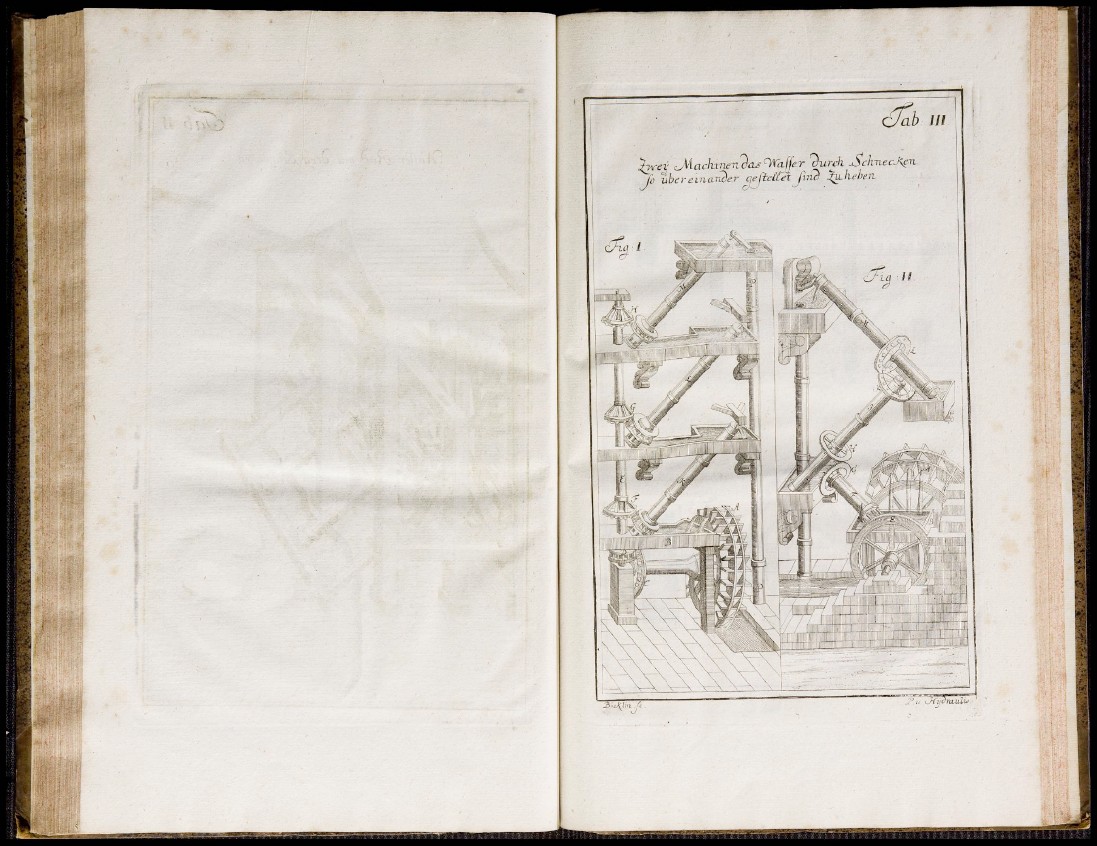 Tab III
Zwei Machinen das Wasser durch Schnecken
so über einander gestellet sind Zu heben
Fig: I
Fig: II